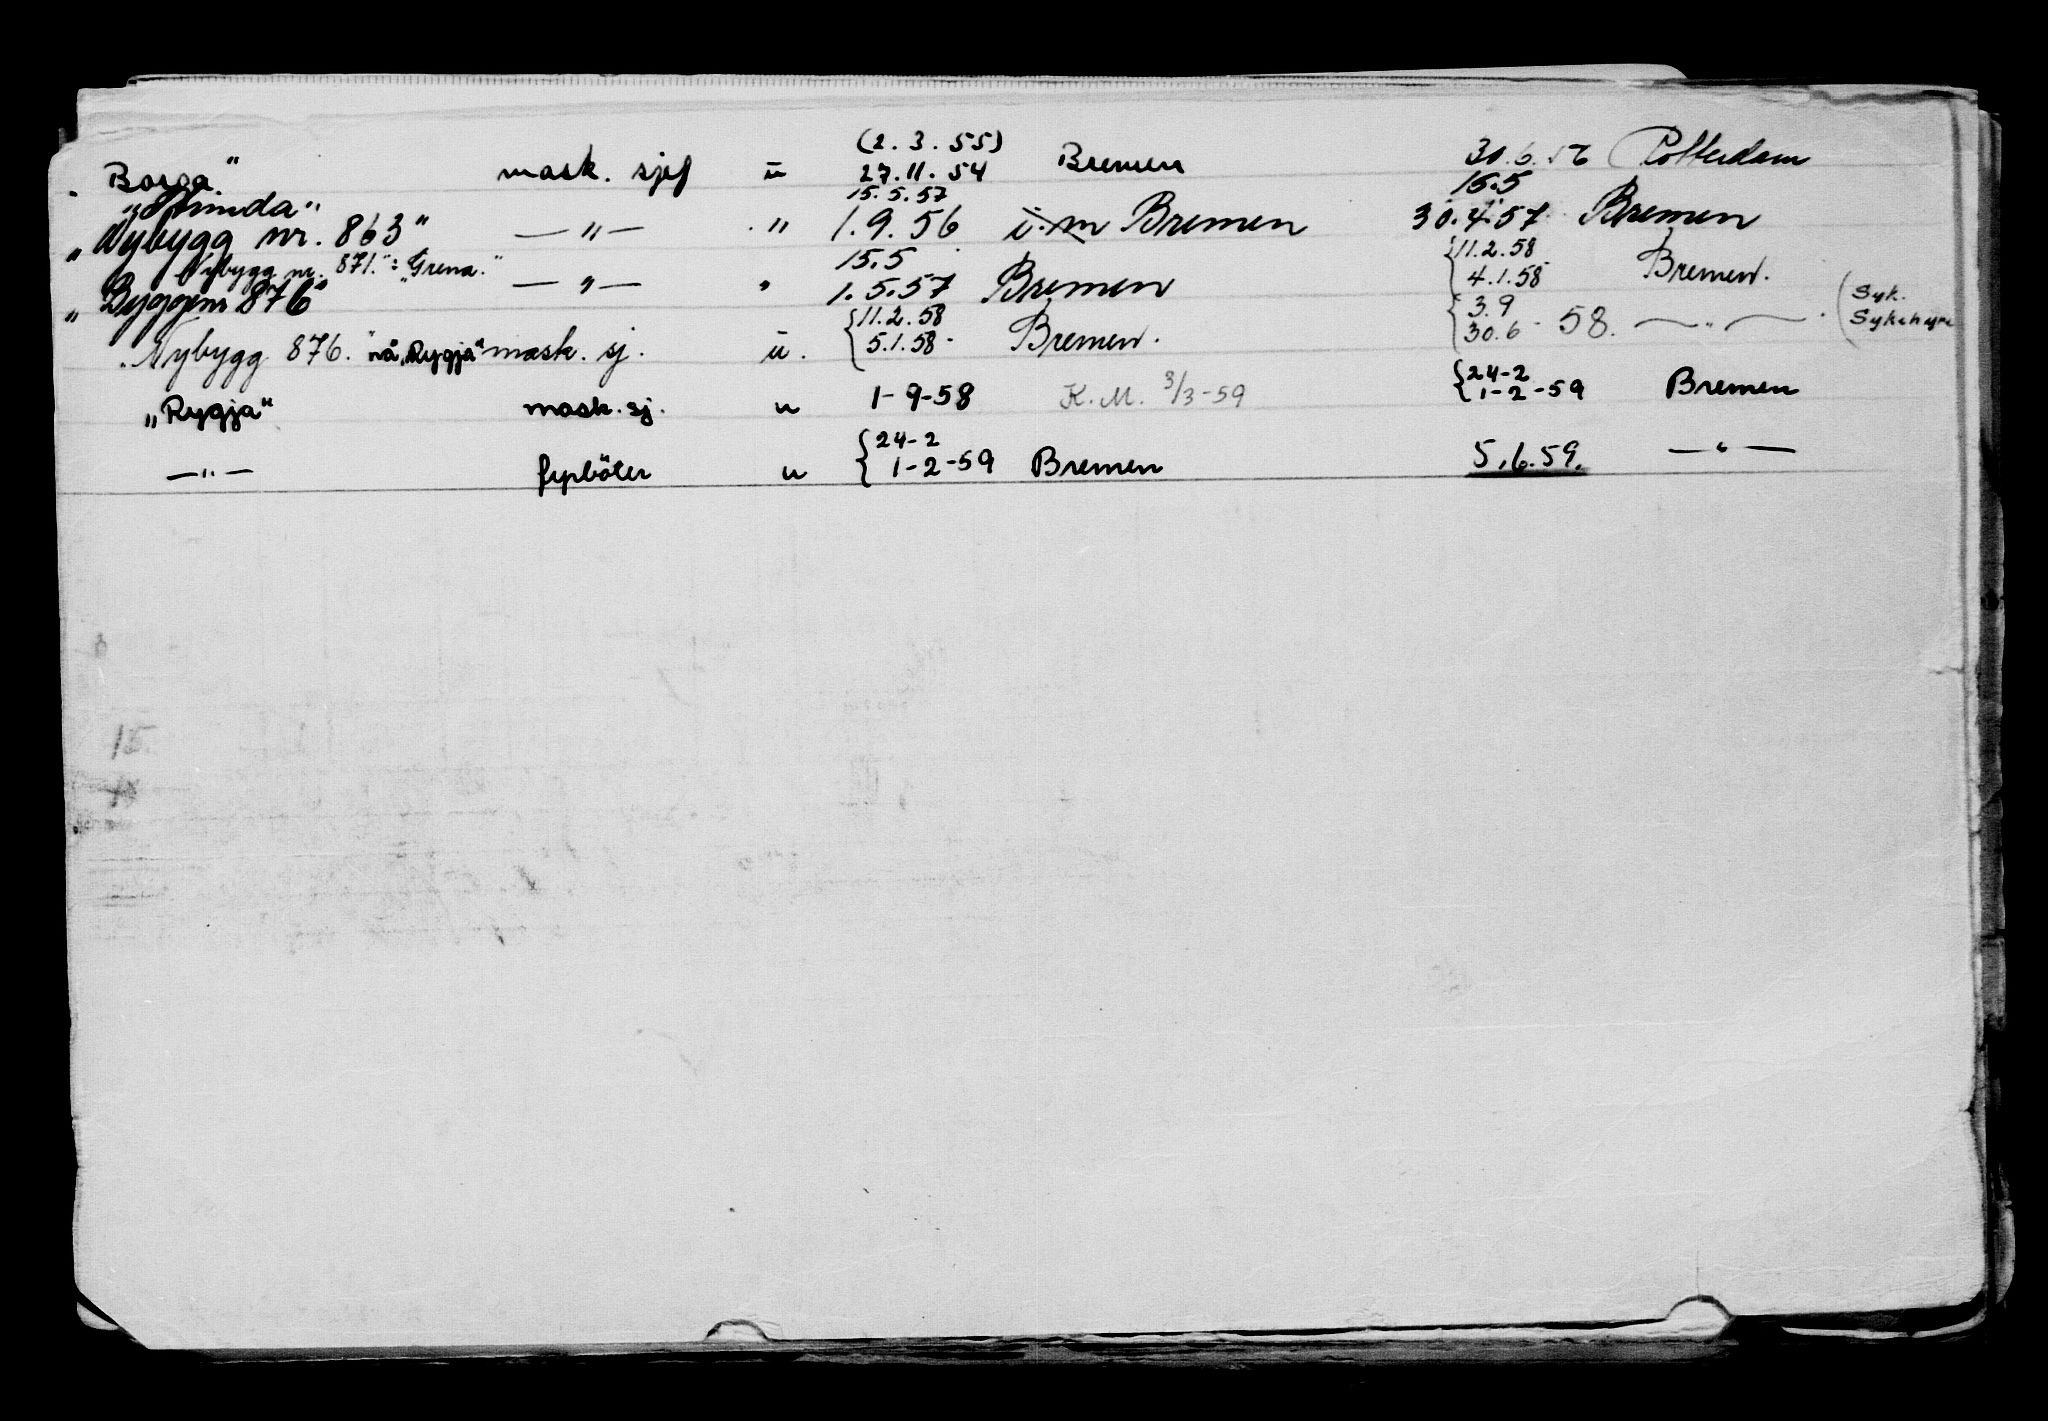 (2. 3. 55)
„Borga“ mask. sjef u 27.11.54 Bremen 30.6.56 Rotterdam
15.5.57 15.5
„Nybygg nr. 863“ —„— „ 1.9.56 Bremen 30.4.57 Bremen
Nybygg nr. 871.“: „Grena.“ 15.5 11.2.58
„Byggenr 876“ —„— „ 1.5.57 Bremen 4.1.58 Bremen.
11.2.58 3.9 (Syk.
Nybygg 876. nå „Rygja“ mask. sj. u. 5.1.58. Bremen. 30.6 - 58. —„— . Sykehyre
24-2
„Rygja“ mask. sj. u 1-9-58 K.M. 3/3-59 1-2-59 Bremen
24-2
—„— fyrböter u 1-2-59 Bremen 5.6.59. —„—
15.